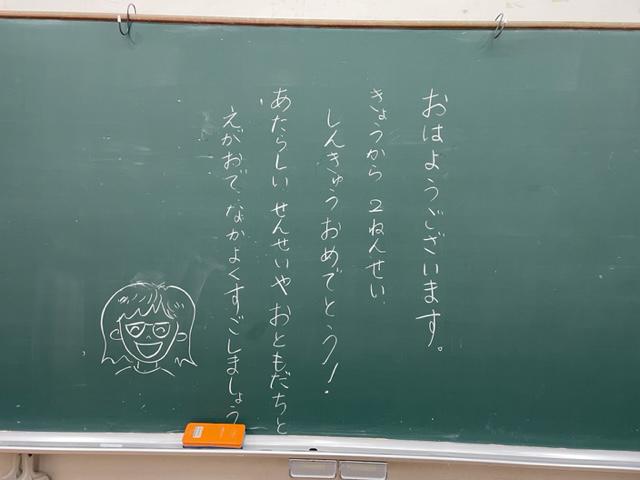 おはようございます。
きょうから 2ねんせい
しんきゅうおめでとう!
あたらしい せんせいや おともだちと
えがおで なかよくすごしましょう